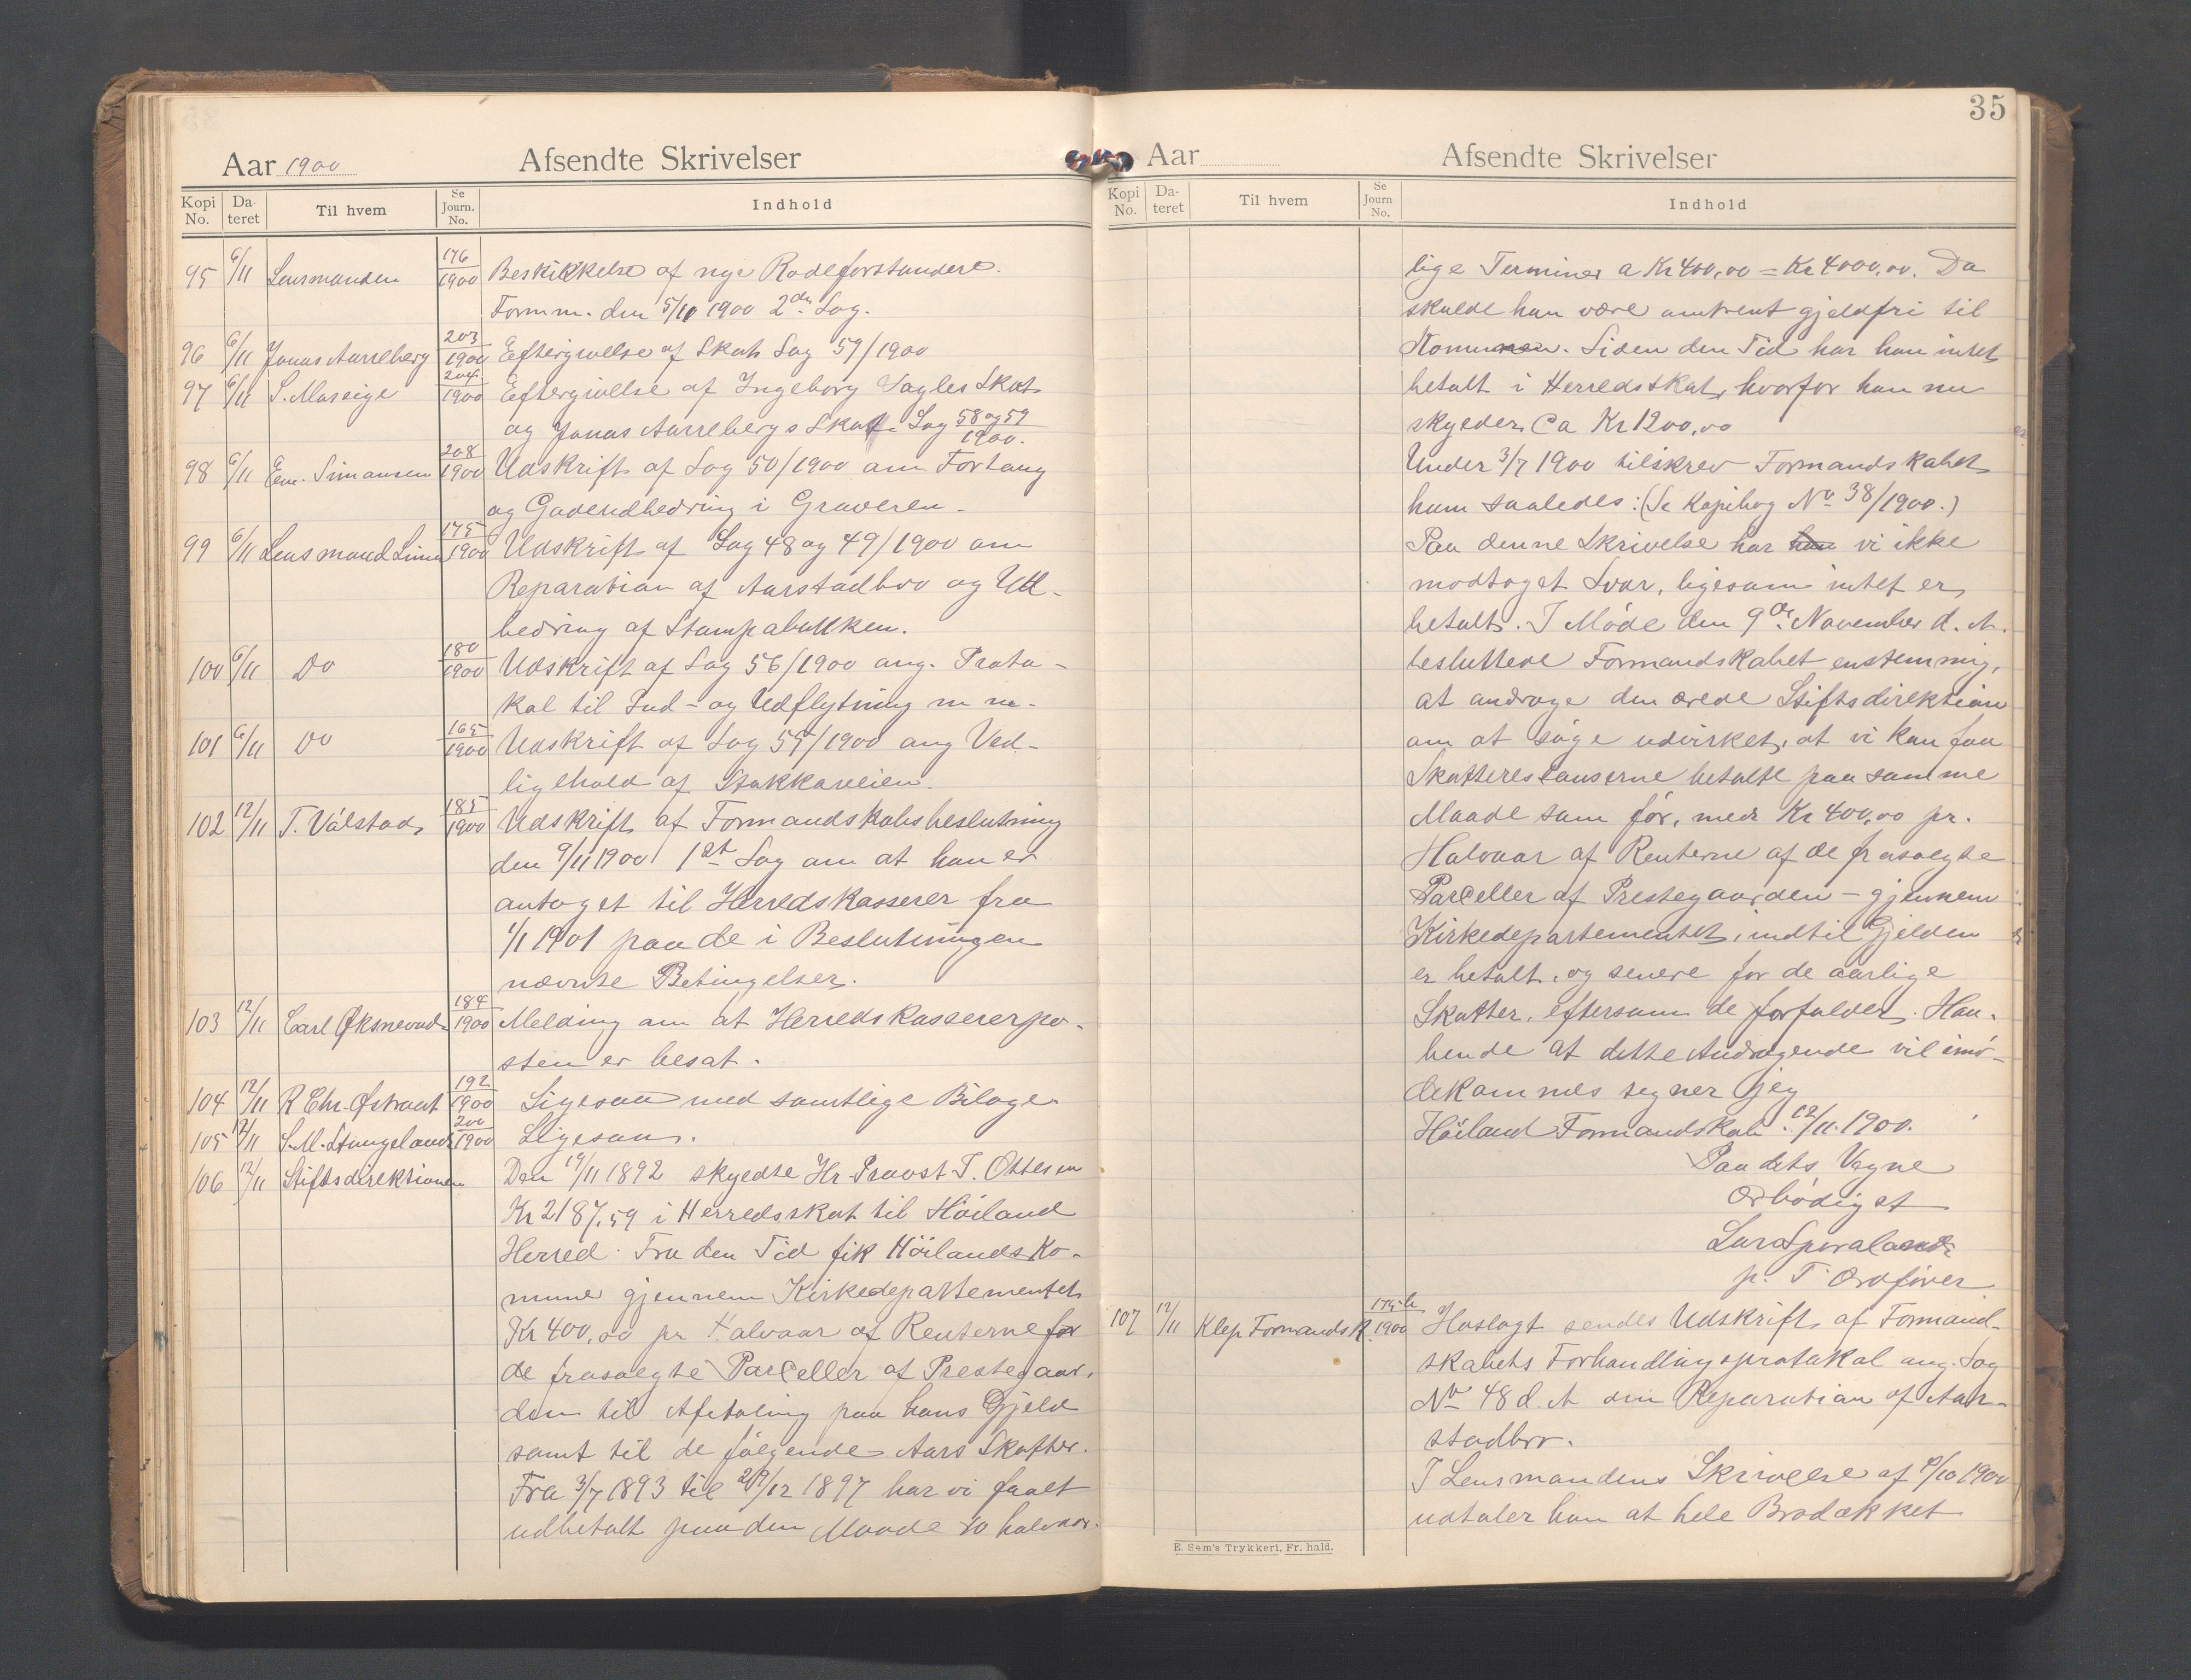 Aar 1900 Afsendte Skrivelser
Kopi No. Da-teret Til hvem Se Journ. No. Indhold
95 6/11 Lensmanden 176/1900 Beskikkelse af nye Rodeforstandere.
Formm. den 5/10 1900 2den Sag.
96 6/11 Jonas Aarreberg 203/1900 Eftergivelse af Skat Sag 59/1900
97 6/11 S. Maseige 204/1900 Eftergivelse af Ingeborg Sagles Skat
og Jonas Aarrebergs Skat. Sag 58 og 59/1900.
98 6/11 Em. Simonsen 208/1900 Udskrift af Sag 50/1900 om Fortaug
og Gadeudbedring i Graveren.
99 6/11 Lensmand Lima 175/1900 Udskrift af Sag 48 og 49/1900 om
Reparation af Aarstadbro og Ud-
bedring af Stampabakken.
100 6/11 Do 180/1900 Udskrift af Sag 56/1900 ang. Proto-
kol til Ind- og Udflytning m m.
101 6/11 Do 165/1900 Udskrift af Sag 55/1900 ang Ved-
ligehold af Stokkaveien.
102 12/11 T. Válstad 185/1900 Udskrift af Formandskabsbeslutning
den 9/11 1900 1st Sag om at han er
antaget til Herredskasserer fra
1/1 1901 paa de i Beslutningen
nævnte Betingelser.
103 12/11 Carl Øksnevad 184/1900 Melding om at Herredskassererpo-
sten er besat.
104 12/11 R Chr. Østraat 192/1900 Ligesaa med samtlige Bilage
105 12/11 S. M. Stangeland 200/1900 Ligesaa.
106 12/11 Stiftsdirektionen Den 19/11 1892 skyldte Hr. Provst T. Ottesen
Kr 2187,59 i Herredsskat til Höiland
Herred. Fra den Tid fik Höilands Ko-
mune gjennem Kirkedepartementet
Kr 400,00 pr Halvaar af Renterne for
de frasolgte Parceller af Prestegaar-
den til Afbetaling paa hans Gjeld
samt til de fölgende Aars Skatter.
Fra 3/7 1893 til 29/12 1897 har vi faaet
udbetalt paa den Maade 10 halvaar-
35
Aar Afsendte Skrivelser
Kopi No. Da-teret Til hvem Se Journ No. Indhold
lige Terminer a Kr 400,00 = Kr 4000,00. Da
skulde han være omtrent gjeldfri til
Komunen. Siden den Tid har han intet
betalt i Herredsskat, hvorfor han nu
skylder Ca Kr 1200,00
Under 3/7 1900 tilskrev Formandskabet
ham saaledes: (Se Kopibog No 38/1900.)
Paa denne Skrivelse har han vi ikke
modtaget Svar, ligesom intet er
betalt. I Möde den 9de November d. A.
besluttede Formandskabet enstemmig,
at andrage den ærede Stiftsdirektion
om at söge udvirket, at vi kan faa
Skatterestanserne betalte paa samme
Maade som för, med Kr 400,00 pr.
Halvaar af Renterne af de frasolgte
Parceller af Prestegaarden - gjennem
Kirkedepartementet, indtil Gjelden
er betalt, og senere for de aarlige
Skatter, eftersom de forfalder. Haa-
bende at dette Andragende vil imö-
dekommes tegner jeg
Höiland Formandskab 12/11. 1900.
Paa dets Vegne
Ærbödigst
Lars Sporaland
p. T. Ordförer
107 12/11 Klep Formandsk 175 b/1900 Hoslagt sendes Udskrift af Formand-
skabets Forhandlingsprotokol ang. Sag
No 48 d. A om Reparation af Aar-
stadbro.
I Lensmandens Skrivelse af /10 1900
udtaler han at hele Brodækket
E. Sem's Trykkeri, Fr. hald.